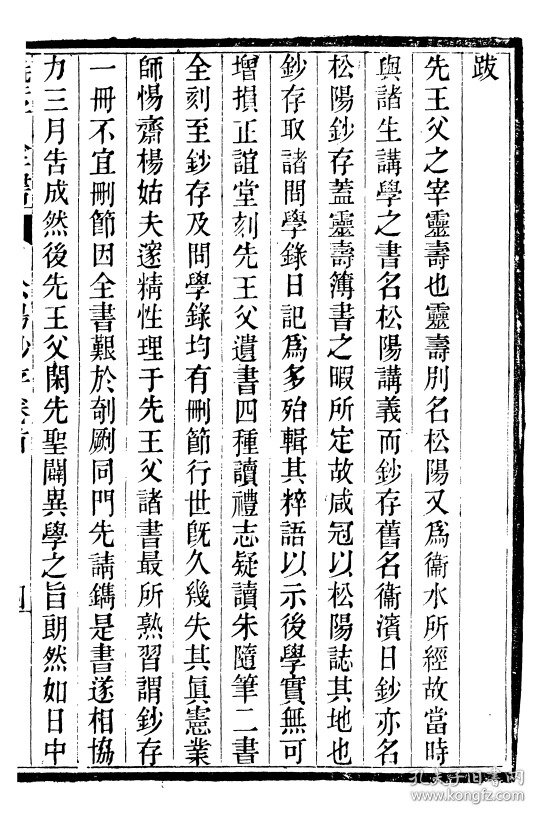 跋
先王父之宰靈壽也靈壽別名松陽又爲衞水所經故當時
與諸生講學之書名松陽講義而鈔存舊名衞濱日鈔亦名
松陽鈔存蓋靈壽簿書之暇所定故咸冠以松陽誌其地也
鈔存取諸問學錄日記爲多殆輯其粹語以示後學實無可
增損正誼堂刻先王父遺書四種讀禮志疑讀朱隨筆二書
全刻至鈔存及問學錄均有刪節行世旣久幾失其眞憲業
師惕齋楊姑夫邃精性理于先王父諸書最所熟習謂鈔存
一冊不宜刪節因全書艱於剞劂同門先請鐫是書遂相協
力三月告成然後先王父閑先聖闢異學之旨朗然如日中
孔夫子旧书网
www.kongfz.com